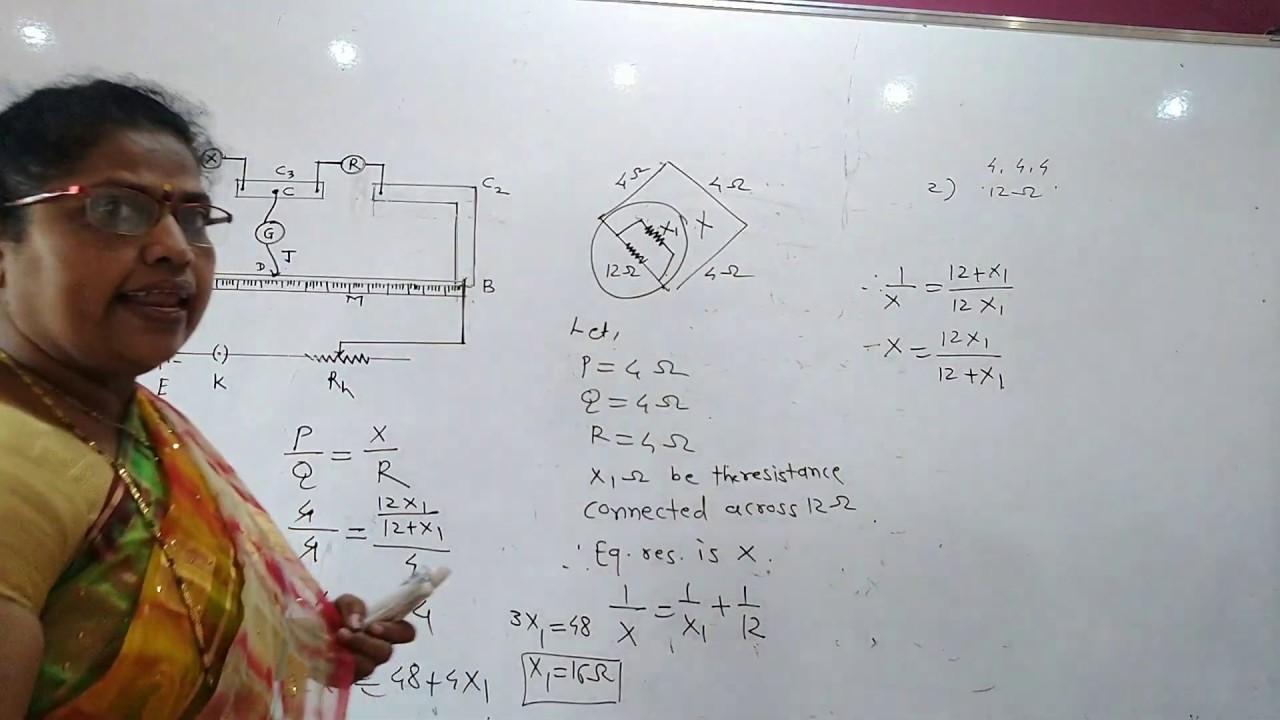 X
C3
C
R
C2
G
J
D
M
B
E
K
Rh
P/Q = X/R
4/4 = (12X1/(12+X1))/4
4
= 48+4X1
4Ω
4Ω
X1
X
12Ω
4Ω
Let,
P = 4 Ω
Q = 4 Ω
R = 4 Ω
X1 Ω be the resistance
connected across 12Ω
∴ Eq. res. is X.
1/X = 1/X1 + 1/12
3X1 = 48
X1 = 16Ω
2) 4, 4, 4
12 Ω
∴ 1/X = (12+X1)/(12 X1)
X = 12X1/(12+X1)